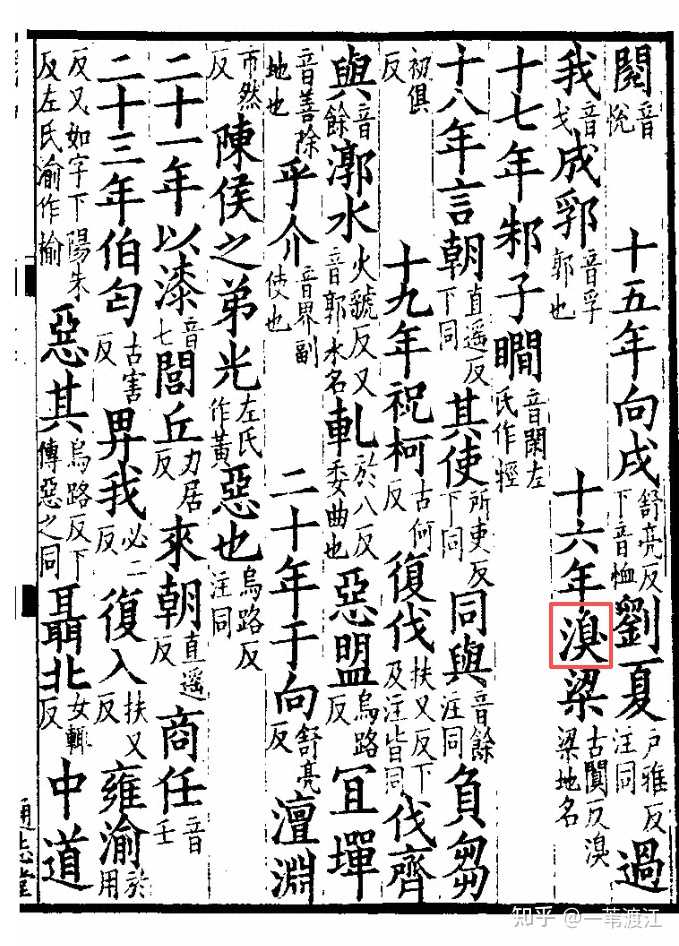 閱音悅 十五年向戌舒亮反下音恤劉夏戶雅反注同 過
我音戈成郛音孚郭也 十六年湨梁古闃反湨梁地名
十七年邾子瞯音閑左氏作牼
十八年言朝直遥反下同其使所吏反下同同與音餘注同負芻
初俱反 十九年祝柯古何反復伐扶又反下及注皆同伐齊
與音餘漷水火虢反又音郭水名軋於八反委曲也惡盟烏路反宜墠
音善除地也乎介音界副使也 二十年于向舒亮反澶淵
市然反陳侯之弟光左氏作黃惡也烏路反注同
二十一年以漆音七閭丘力居反來朝直遥反商任音壬
二十三年伯匄古害反畀我必二反復入扶又反雍渝於用
反又如字下陽朱反左氏渝作榆 惡其烏路反下傳惡之同聶北女輒反中道
通志堂
知乎 @一苇渡江